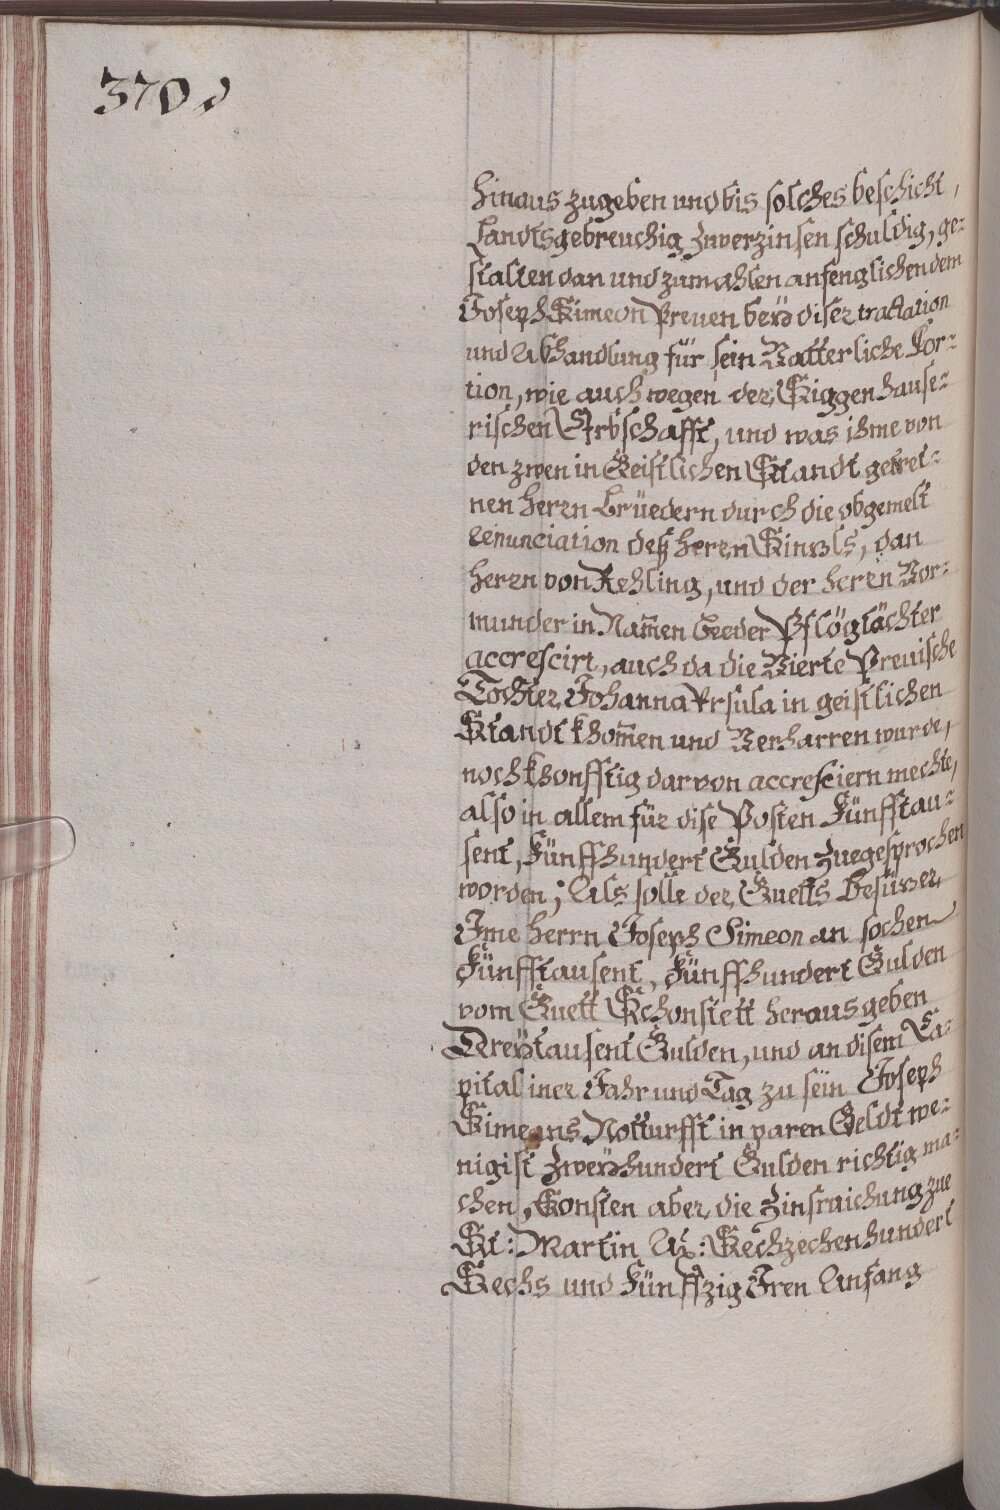 370
hinaus zugeben und bis solches beschicht,
Landtsgebreuchig zuverzinsen schuldig, ge-
stalten dan und zumahlen anfenglichen dem
Joseph Simeon Preuen bey diser tractation
und Abhandlung für sein Vatterliche Por-
tion, wie auch wegen der Siggenhause-
rischen Erbschafft, und was ihme von
den zwen in Geistlichen Standt getret-
nen herrn Brüedern durch die obgemelt
renunciation deß herrn Kinßls, dan
herrn von Rehling, und der herrn Vor-
munder in Nam̃en beeder Pflögtächter
accrescirt, auch da die Vierte Preuische
Tochter Johanna Ursula in geistlichen
Standt khom̃en und Verharren wurde,
noch khonfftig darvon accresciern mechte,
also in allem für dise Posten Fünfftau-
sent, Fünffhundert Gulden zuegesprochen
worden; Als solle der Guetts Besüzer
Ime herrn Joseph Simeon an sochen
Fünfftausent, Fünffhundert Gulden
vom Guett Schonstett herausgeben
Dreytausent Gulden, und an disem Ca-
pital iner Jahr und Tag zu sein Joseph
Simeons Notturfft in paren Geldt we-
nigist Zweyhundert Gulden richtig ma-
chen, Sonsten aber die Zinsraichung zue
St: Martin Ao: Sechzechenhundert
Sechs und Fünffzig Iren Anfang